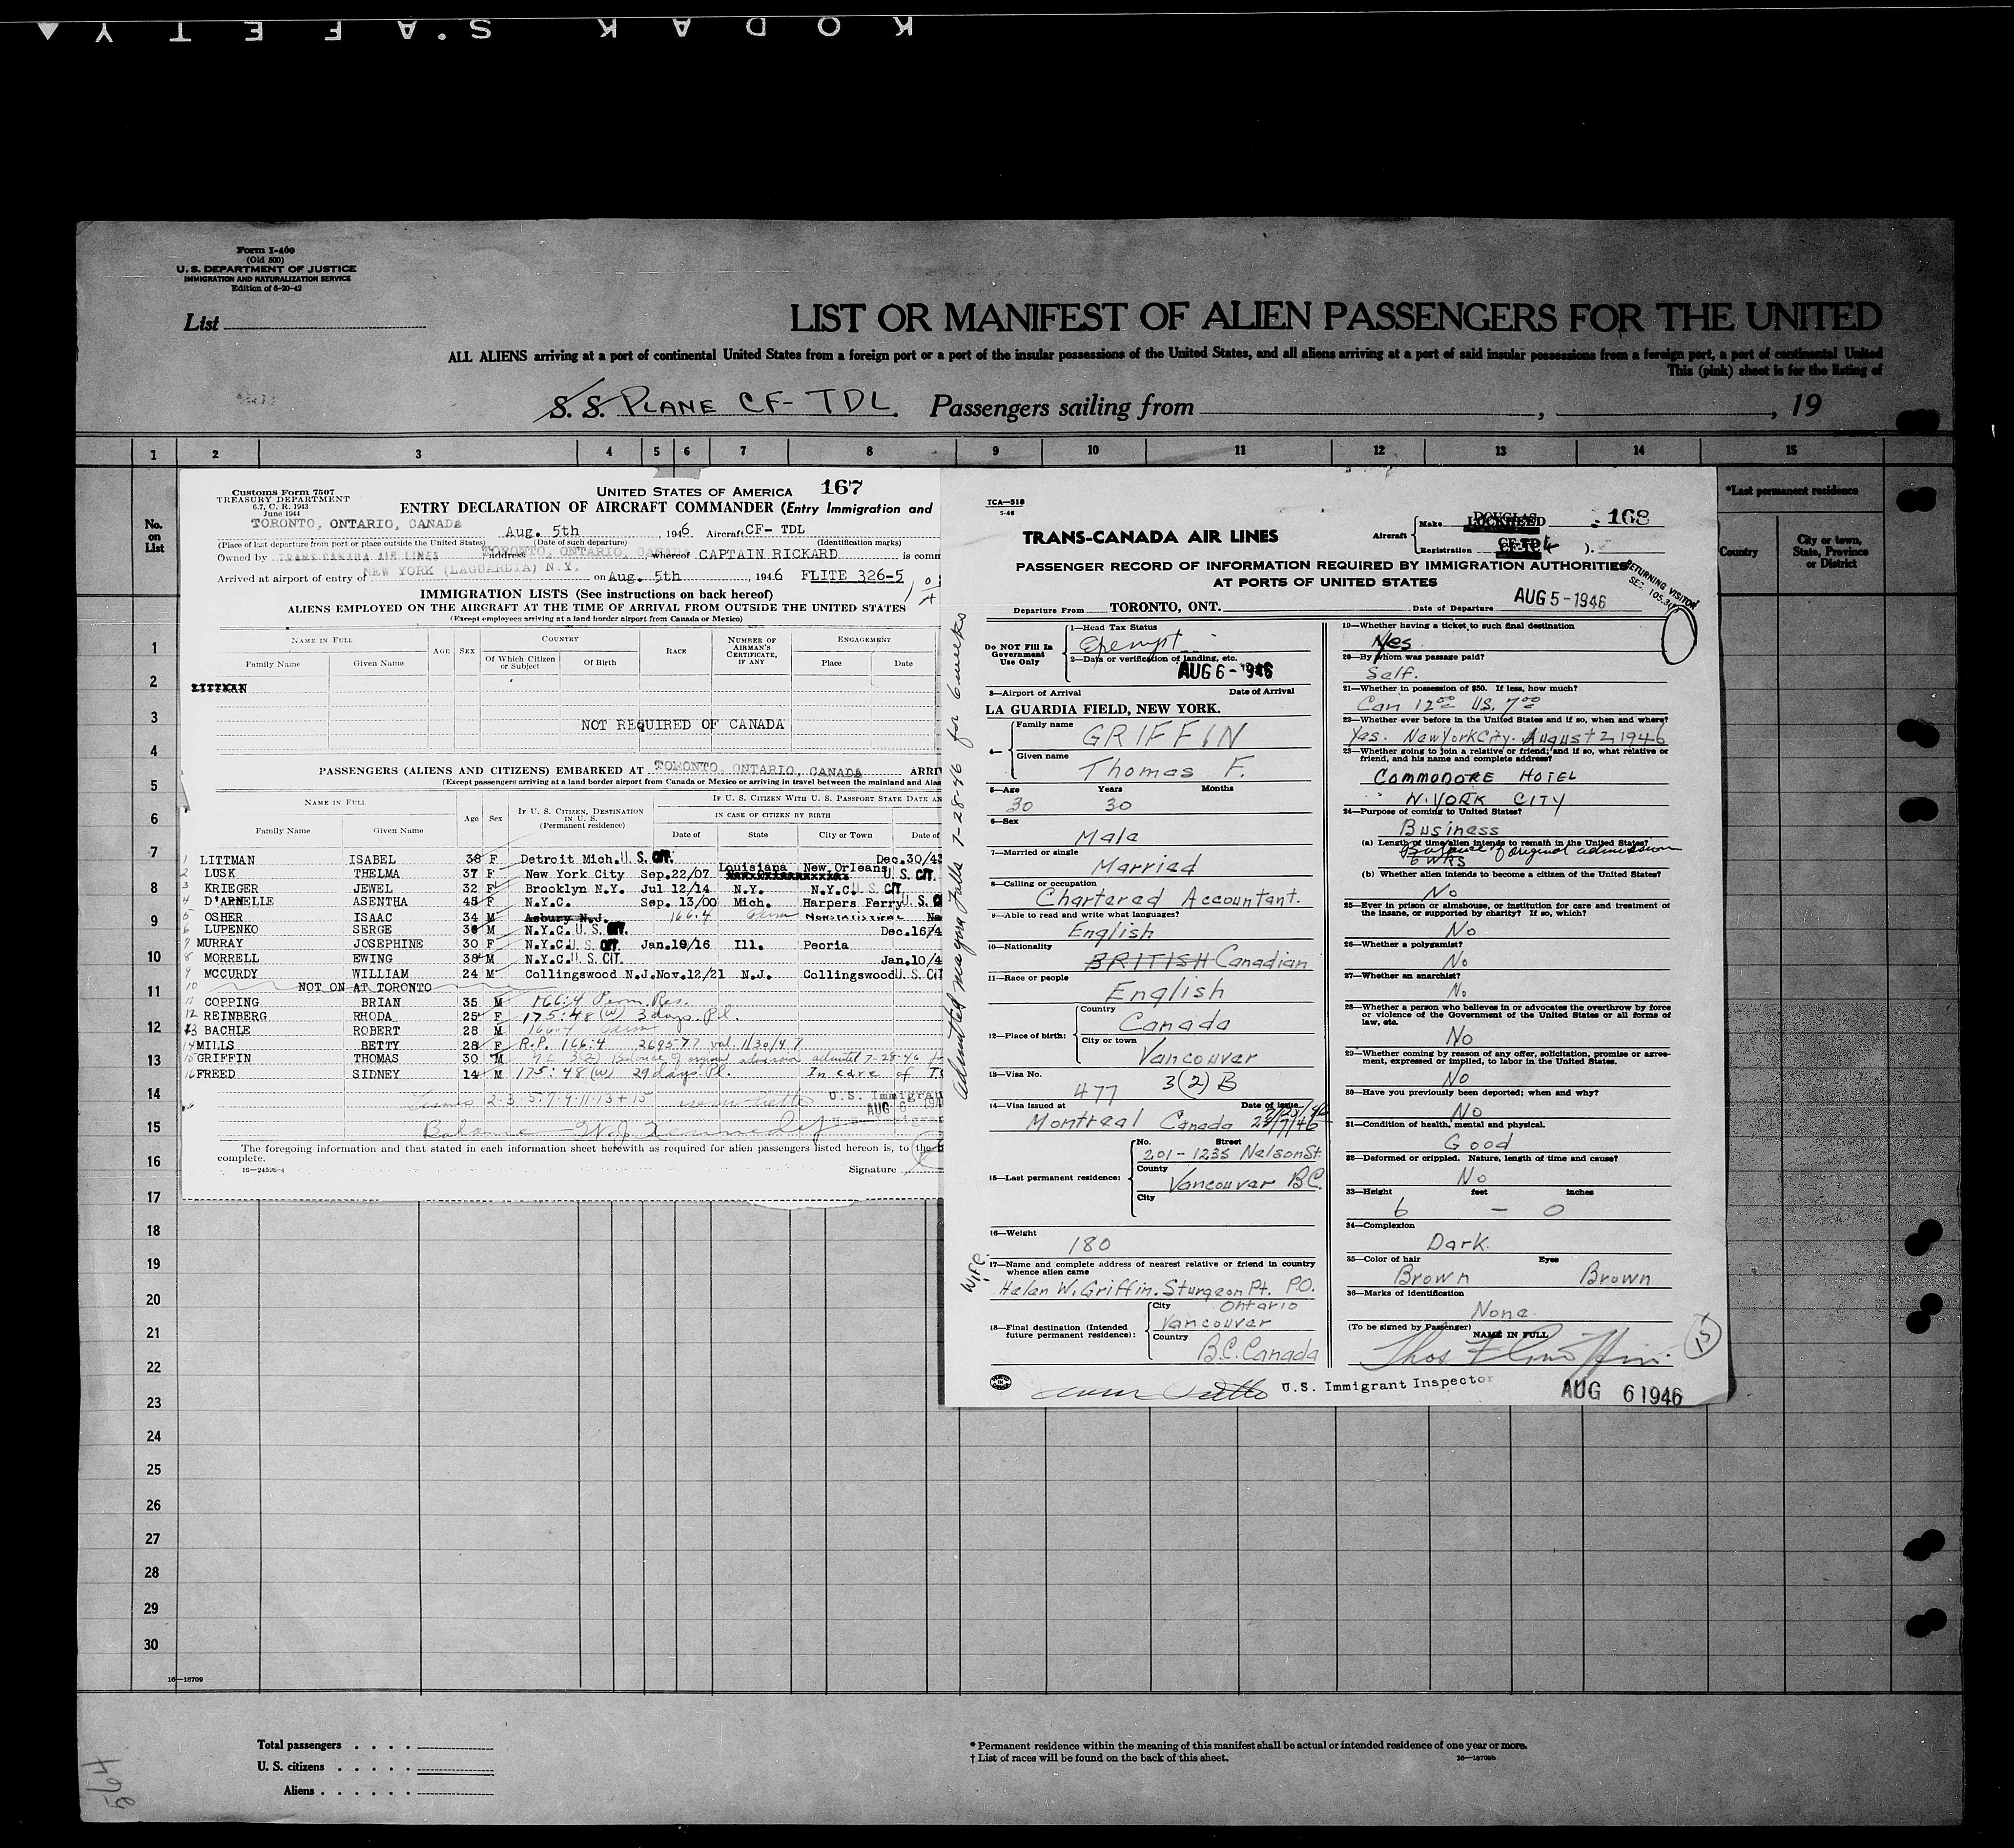 KODAK S.AFETY
Form I-400
(Old 500)
U. S. DEPARTMENT OF JUSTICE
IMMIGRATION AND NATURALIZATION SERVICE
Edition of 6-20-42
List
LIST OR MANIFEST OF ALIEN PASSENGERS FOR THE UNITED
ALL ALIENS arriving at a port of continental United States from a foreign port or a port of the insular possessions of the United States, and all aliens arriving at a port of said insular possessions from a foreign port, a port of continental United
This (pink) sheet is for the listing of
S. S. PLANE CF-TDL. Passengers sailing from , , 19
1 2 3 4 5 6 7 8 9 10 11 12 13 14 15
No. on List
*Last permanent residence
Country
City or town, State, Province or District
1
2
3
4
5
6
7
8
9
10
11
12
13
14
15
16
17
18
19
20
21
22
23
24
25
26
27
28
29
30
16—18709
Customs Form 7507
TREASURY DEPARTMENT
6.7, C. R. 1943
June 1944
UNITED STATES OF AMERICA 167
ENTRY DECLARATION OF AIRCRAFT COMMANDER (Entry Immigration and
TORONTO, ONTARIO, CANADA Aug. 5th , 1946 Aircraft CF- TDL
(Place of last departure from port or place outside the United States) (Date of such departure) (Identification marks)
Owned by TRANS-CANADA AIR LINES , address TORONTO, ONTARIO, , whereof CAPTAIN RICKARD is comm
Arrived at airport of entry of NEW YORK (LAGUARDIA) N.Y. on Aug. 5th , 1946 FLITE 326-5
IMMIGRATION LISTS (See instructions on back hereof)
ALIENS EMPLOYED ON THE AIRCRAFT AT THE TIME OF ARRIVAL FROM OUTSIDE THE UNITED STATES
(Except employees arriving at a land border airport from Canada or Mexico)
NAME IN FULL AGE SEX COUNTRY RACE NUMBER OF AIRMAN'S CERTIFICATE, IF ANY ENGAGEMENT
Family Name Given Name Of Which Citizen or Subject Of Birth Place Date
LITTMAN
NOT REQUIRED OF CANADA
PASSENGERS (ALIENS AND CITIZENS) EMBARKED AT TORONTO, ONTARIO, CANADA ARRIV
(Except passengers arriving at a land border airport from Canada or Mexico or arriving in travel between the mainland and Alas
NAME IN FULL Age Sex IF U. S. CITIZEN, DESTINATION IN U. S. (Permanent residence) IF U. S. CITIZEN WITH U. S. PASSPORT STATE DATE AN
IN CASE OF CITIZEN BY BIRTH
Family Name Given Name Date of State City or Town Date of
1 LITTMAN ISABEL 38 F Detroit Mich. U. S. CIT. Dec.30/43
2 LUSK THELMA 37 F New York City Sep.22/07 Louisiana New Orleans U. S. CIT.
3 KRIEGER JEWEL 32 F Brooklyn N.Y. Jul 12/14 N.Y. N.Y.C. U. S. CIT.
4 D'ARNELLE ASENTHA 45 F N.Y.C. Sep. 13/00 Mich. Harpers Ferry U. S. C
5 OSHER ISAAC 34 M Asbury N.J. 166.4 Perm
6 LUPENKO SERGE 36 M N.Y.C. U. S. CIT. Dec.16/4
7 MURRAY JOSEPHINE 30 F N.Y.C. U. S. CIT. Jan.10/16 Ill. Peoria
8 MORRELL EWING 38 M N.Y.C. U. S. CIT. Jan.10/4
9 MCCURDY WILLIAM 24 M Collingswood N.J. Nov.12/21 N.J. Collingswood U. S. CIT
10 NOT ON AT TORONTO
11 COPPING BRIAN 35 M 166:4 Perm. Res.
12 REINBERG RHODA 25 F 175:48 (W) 3 days. Pl.
13 BACHLE ROBERT 28 M 166.4 Perm
14 MILLS BETTY 28 F R.P. 166:4 269577 val. 1/30/47
15 GRIFFIN THOMAS 30 M 3(2) Balance of original admission admitted 7-28-46
16 FREED SIDNEY 14 M 175:48 (W) 29 days. Pl. In care of
Lines 2-3-5-7-9-11-13+15 U. S. Immigran
AUG 6 194
Balance W. J. Kennedy
The foregoing information and that stated in each information sheet herewith as required for alien passengers listed hereon is, to the b
complete.
16—24595-4
Signature
TCA—518
5-46
TRANS-CANADA AIR LINES
Aircraft Make DOUGLAS LOCKHEED 168
Registration
PASSENGER RECORD OF INFORMATION REQUIRED BY IMMIGRATION AUTHORITIES
AT PORTS OF UNITED STATES
RETURNING VISITOR
Departure From TORONTO, ONT. Date of Departure AUG 5 - 1946
admitted Niagara Falls 7-28-46 for 6 weeks
Do NOT Fill In Government Use Only
1—Head Tax Status
Exempt
2—Data or verification of landing, etc.
AUG 6 - 1946
3—Airport of Arrival Date of Arrival
LA GUARDIA FIELD, NEW YORK.
4— Family name GRIFFIN
Given name Thomas F.
5—Age Years Months
30 30
6—Sex
Male
7—Married or single
Married
8—Calling or occupation
Chartered Accountant.
9—Able to read and write what languages?
English
10—Nationality
BRITISH Canadian
11—Race or people
English
12—Place of birth: Country
Canada
City or town
Vancouver
13—Visa No.
477 3(2) B
14—Visa issued at Date of issue
Montreal Canada 25/7/46
15—Last permanent residence: No. Street
201-1235 Nelson St.
County
Vancouver B.C.
City
16—Weight
180
17—Name and complete address of nearest relative or friend in country whence alien came
Wife
Helen W. Griffin. Sturgeon Pt. P.O.
Ontario
18—Final destination (Intended future permanent residence): City
Vancouver
Country
B.C. Canada
19—Whether having a ticket to such final destination
Yes
20—By whom was passage paid?
Self.
21—Whether in possession of $50. If less, how much?
Can 12.00 US. 7.00
22—Whether ever before in the United States and if so, when and where?
Yes. New York City. August 2, 1946
23—Whether going to join a relative or friend; and if so, what relative or friend, and his name and complete address?
COMMODORE HOTEL
N. YORK CITY
24—Purpose of coming to United States?
Business
(a) Length of time alien intends to remain in the United States?
Balance of original admission
6 WKS
(b) Whether alien intends to become a citizen of the United States?
No
25—Ever in prison or almshouse, or institution for care and treatment of the insane, or supported by charity? If so, which?
No
26—Whether a polygamist?
No
27—Whether an anarchist?
No
28—Whether a person who believes in or advocates the overthrow by force or violence of the Government of the United States or all forms of law, etc.
No
29—Whether coming by reason of any offer, solicitation, promise or agreement, expressed or implied, to labor in the United States.
No
30—Have you previously been deported; when and why?
No
31—Condition of health, mental and physical.
Good
32—Deformed or crippled. Nature, length of time and cause?
No
33—Height feet inches
6 - 0
34—Complexion
Dark.
35—Color of hair Eyes
Brown Brown
36—Marks of identification
None.
(To be signed by Passenger) NAME IN FULL
Thos F Griffin. 15
U.S. Immigrant Inspector AUG 6 1946
Total passengers . . . .
U. S. citizens . . . . .
Aliens . . . . . .
* Permanent residence within the meaning of this manifest shall be actual or intended residence of one year or more.
† List of races will be found on the back of this sheet. 16—18709b